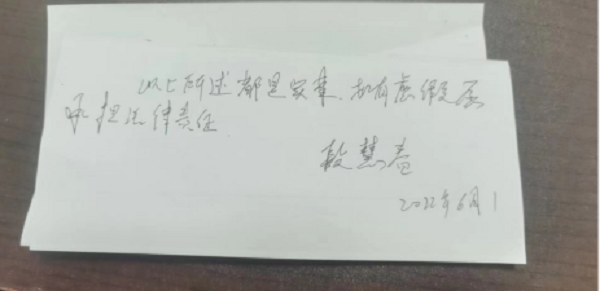 以上所述都是实事，如有虚假愿
承担法律责任
段慧
2022年6月1